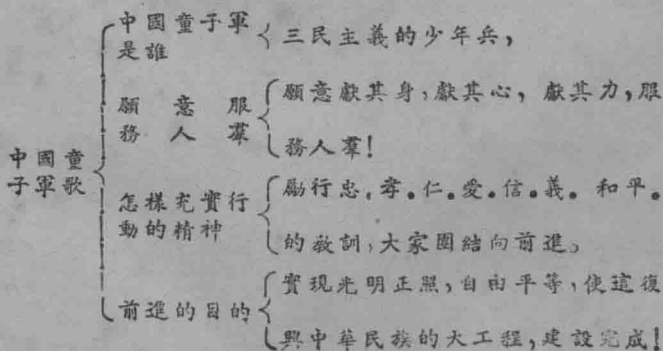 中國童
子軍歌
中國童子軍
是誰
三民主義的少年兵，
願意服
務人羣
願意獻其身，獻其心，獻其力，服
務人羣！
怎樣充實行
動的精神
勵行忠．孝．仁．愛．信．義．和平．
的教訓，大家團結向前進。
前進的目的
實現光明正照，自由平等，使這復
興中華民族的大工程，建設完成！